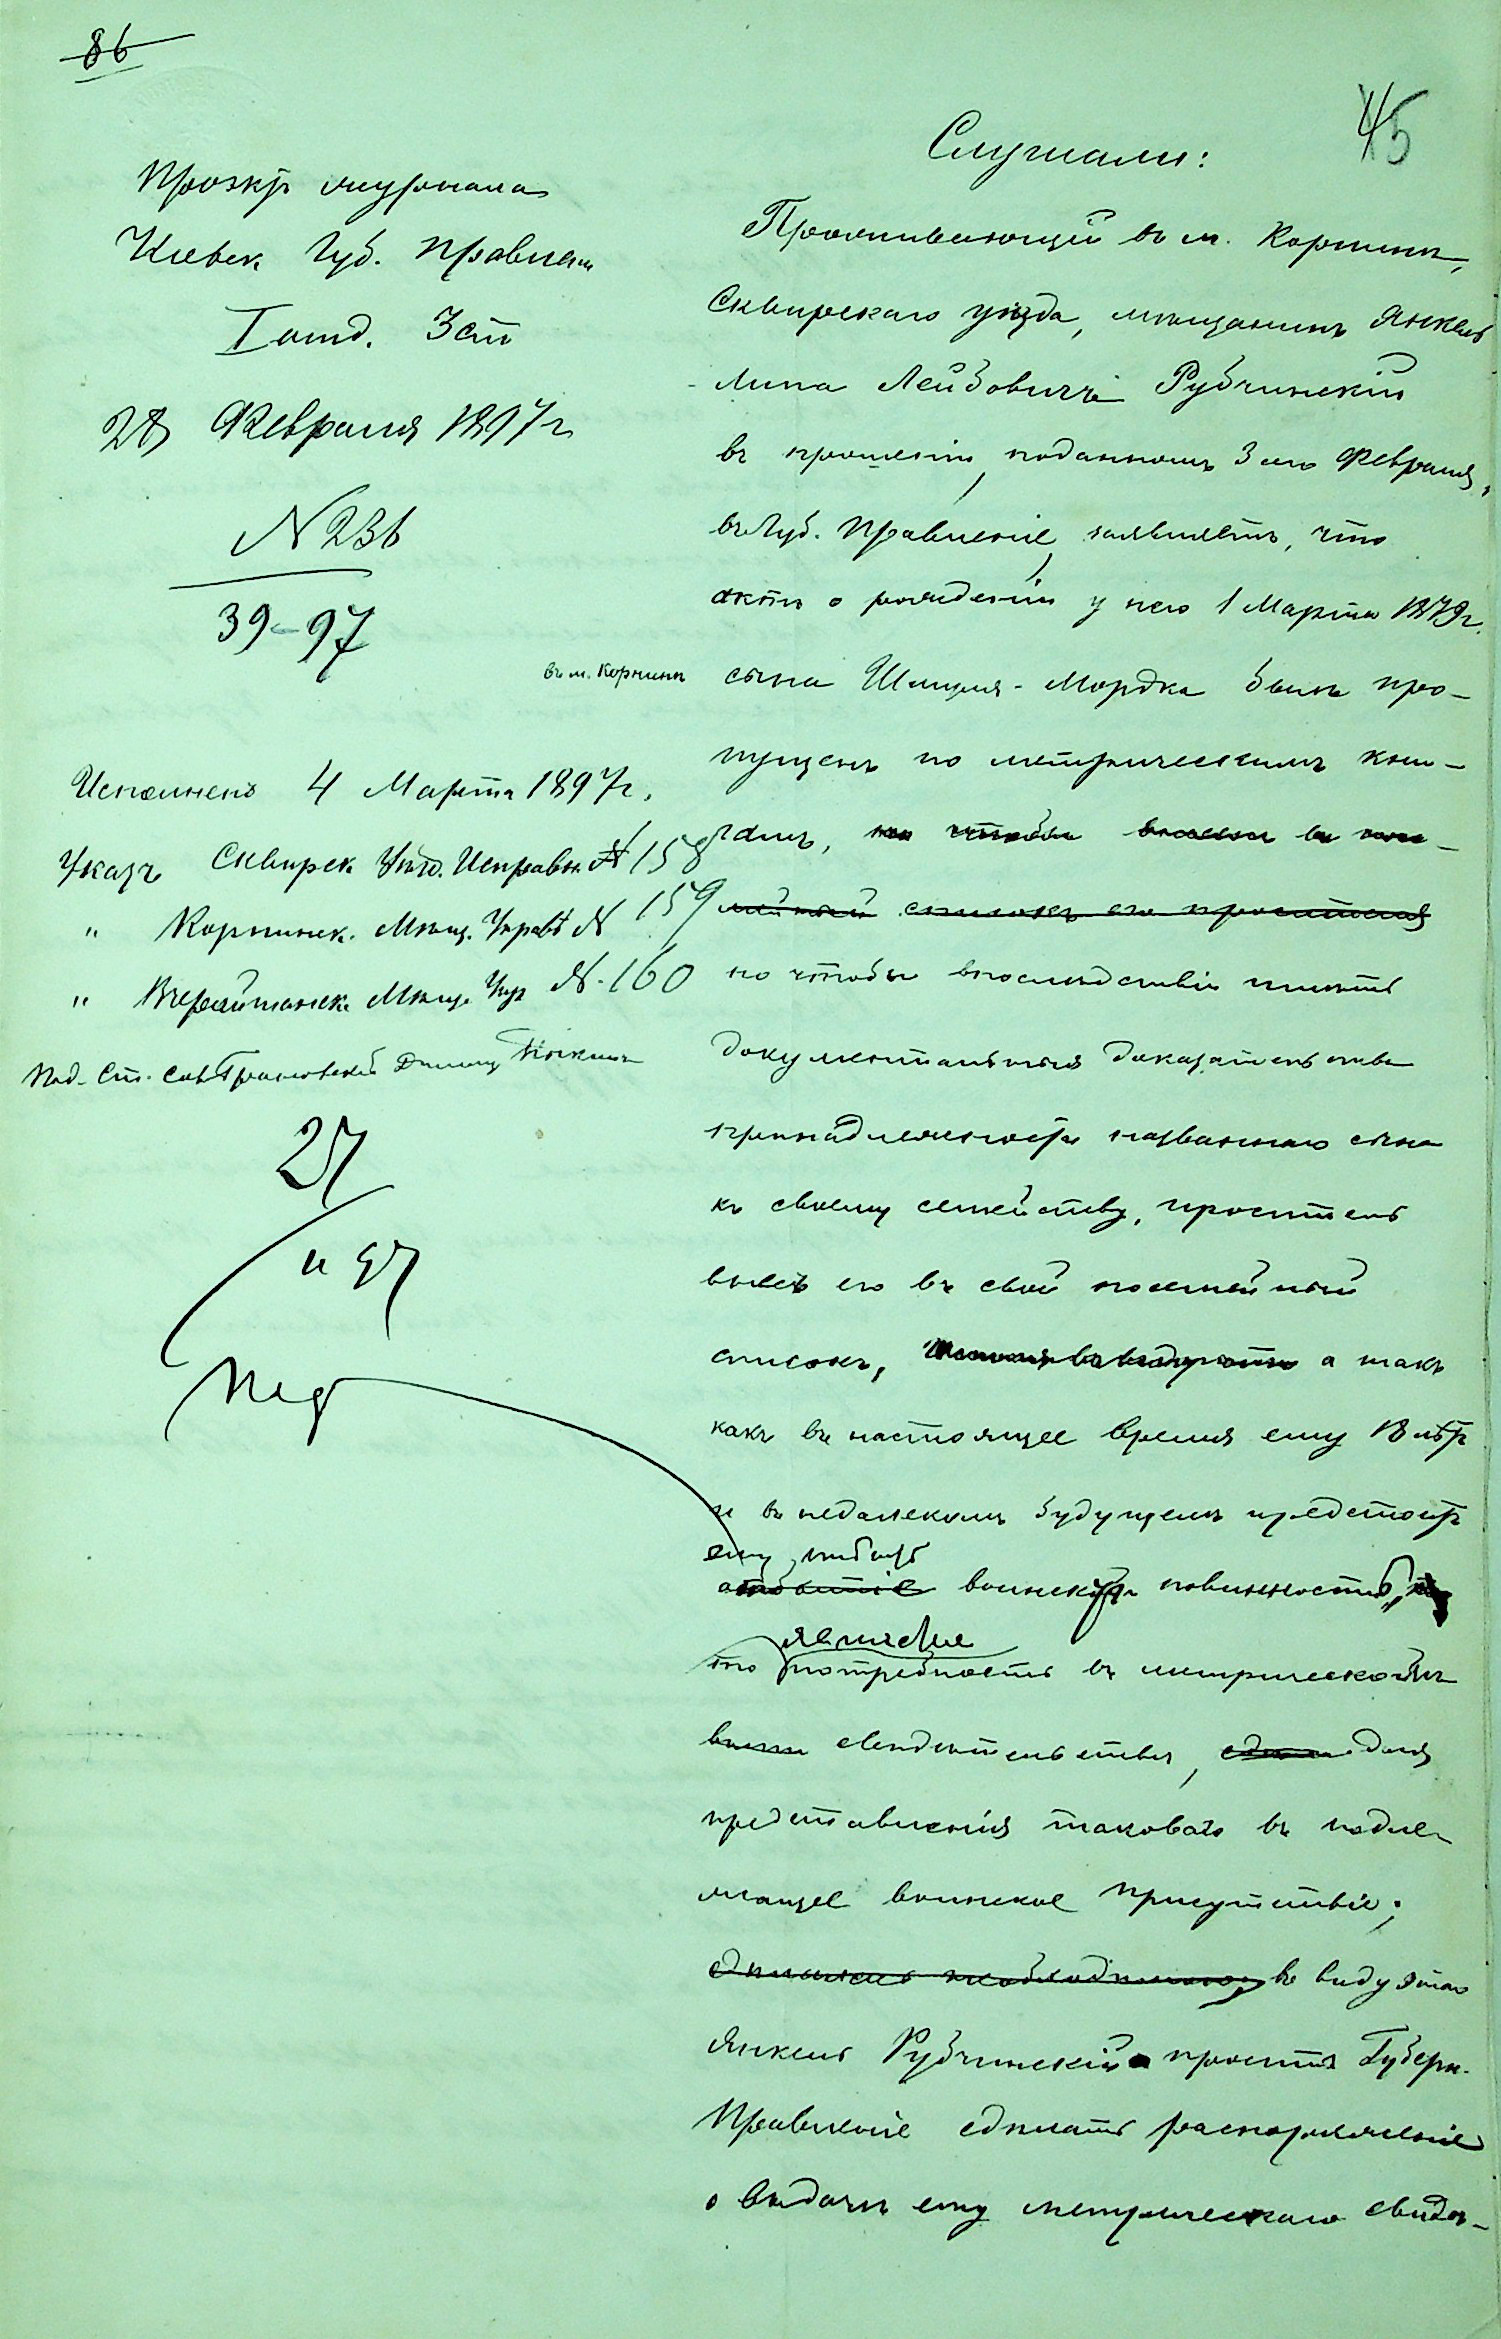 86
45
Проэктъ журнала
Киевск. Губ. Правлен.
I отд. 3 ст.
28 Февраля 1897 г.
№ 236
39-97
Исполнено 4 Марта 1897 г.
Указъ Сквирск. Уѣзд. Исправн. № 158
" Корнинск. Мѣщ. Управѣ № 159
" Вчерайшанск. Мѣщ. Упр № 160
Под. Ст. Сов.
27
II 97
Слушали:
Проживающій въ м. Корнинѣ,
Сквирскаго уѣзда, мѣщанинъ Янкель
Липа Лейбовичъ Рубчинскій
въ прошеніи, поданномъ 3 сего Февраля,
въ Губ. Правленіе, заявляетъ, что
актъ о рожденіи у него 1 Марта 1879 г.
въ м. Корнинѣ сына Шмуля-Мордка былъ про-
пущенъ по метрическимъ кни-
гамъ,
мейный списокъ его просителя
но чтобы впослѣдствіи имѣть
документальныя доказательства
принадлежности названнаго сына
къ своему семейству, проситель
внесъ его въ свой посемейный
списокъ, а такъ
какъ въ настоящее время ему 18 лѣтъ
и въ недалекомъ будущемъ предстоитъ
ему
отбытіе воинской повинности,
явилась
то потребность въ метрическомъ
свидѣтельствѣ, для
представленія таковаго въ подле-
жащее воинское присутствіе;
въ виду этого
Янкель Рубчинскій проситъ Губерн.
Правленіе сдѣлать распоряженіе
о выдачѣ ему метрическаго свидѣ-